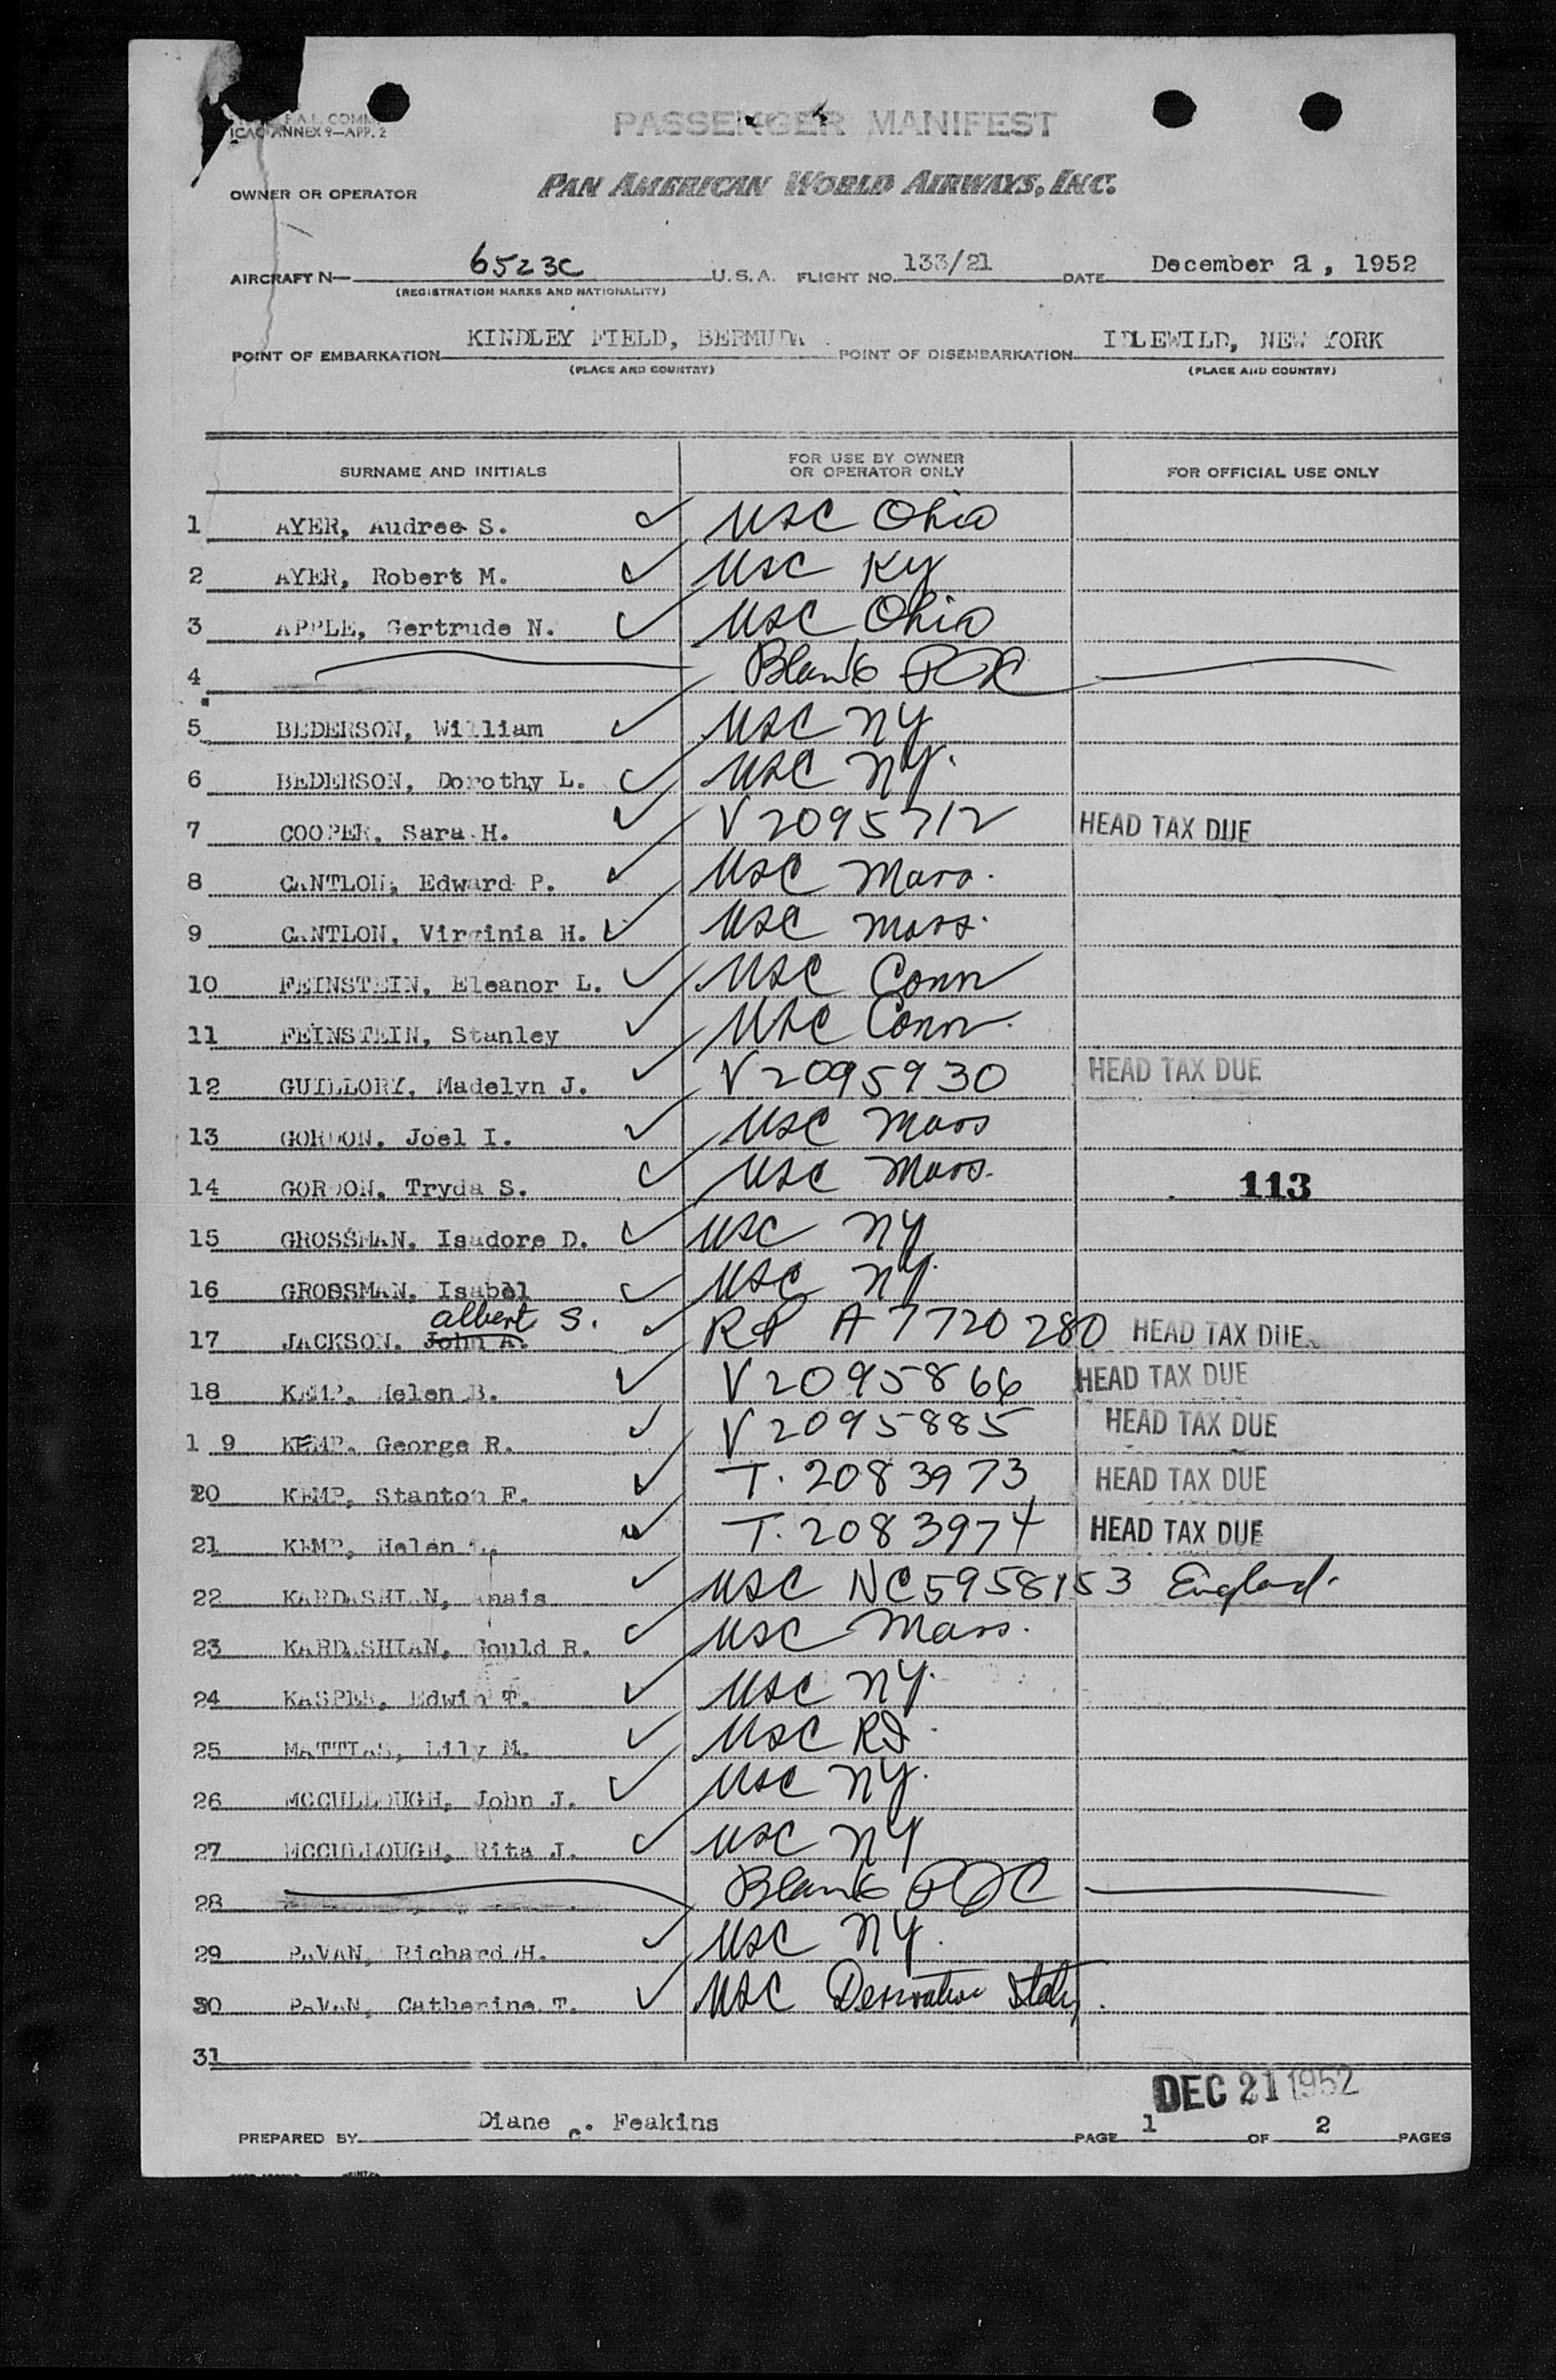 F.A.L. COMM
ICAO ANNEX 9—APP. 2
PASSENGER MANIFEST
OWNER OR OPERATOR PAN AMERICAN WORLD AIRWAYS, INC.
AIRCRAFT N— 6523C U.S.A. FLIGHT NO. 133/21 DATE December 21, 1952
(REGISTRATION MARKS AND NATIONALITY)
POINT OF EMBARKATION KINDLEY FIELD, BERMUDA POINT OF DISEMBARKATION IDLEWILD, NEW YORK
(PLACE AND COUNTRY) (PLACE AND COUNTRY)
SURNAME AND INITIALS FOR USE BY OWNER OR OPERATOR ONLY FOR OFFICIAL USE ONLY
1 AYER, Audree S. USC Ohio
2 AYER, Robert M. USC Ky
3 APPLE, Gertrude N. USC Ohio
4 Blank
5 BEDERSON, William USC NY
6 BEDERSON, Dorothy L. USC NY.
7 COOPER, Sara H. V2095712 HEAD TAX DUE
8 CANTLON, Edward P. USC Mass.
9 CANTLON, Virginia H. USC Mass.
10 FEINSTEIN, Eleanor L. USC Conn
11 FEINSTEIN, Stanley USC Conn.
12 GUILLORY, Madelyn J. V2095930 HEAD TAX DUE
13 GORDON, Joel I. USC Mass
14 GORDON, Tryda S. USC Mass. 113
15 GROSSMAN, Isadore D. USC NY
16 GROSSMAN, Isabel USC NY.
albert S.
17 JACKSON, John A. RP A7720280 HEAD TAX DUE
18 KEMP, Helen B. V2095866 HEAD TAX DUE
1 9 KEMP, George R. V2095885 HEAD TAX DUE
20 KEMP, Stanton F. T. 2083973 HEAD TAX DUE
21 KEMP, Helen T. 2083974 HEAD TAX DUE
22 KARDASHIAN, Anais USC NC5958153 England.
23 KARDASHIAN, Gould R. USC Mass.
24 KASPER, Edwin T. USC NY.
25 MATTIAS, Lily M. USC RI.
26 MCCULLOUGH, John J. USC NY.
27 MCCULLOUGH, Rita J. USC NY
28 Blank
29 PAVAN, Richard H. USC NY.
30 PAVAN, Catherine T. USC Derivative Status.
31
DEC 21 1952
PREPARED BY Diane C. Feakins PAGE 1 OF 2 PAGES